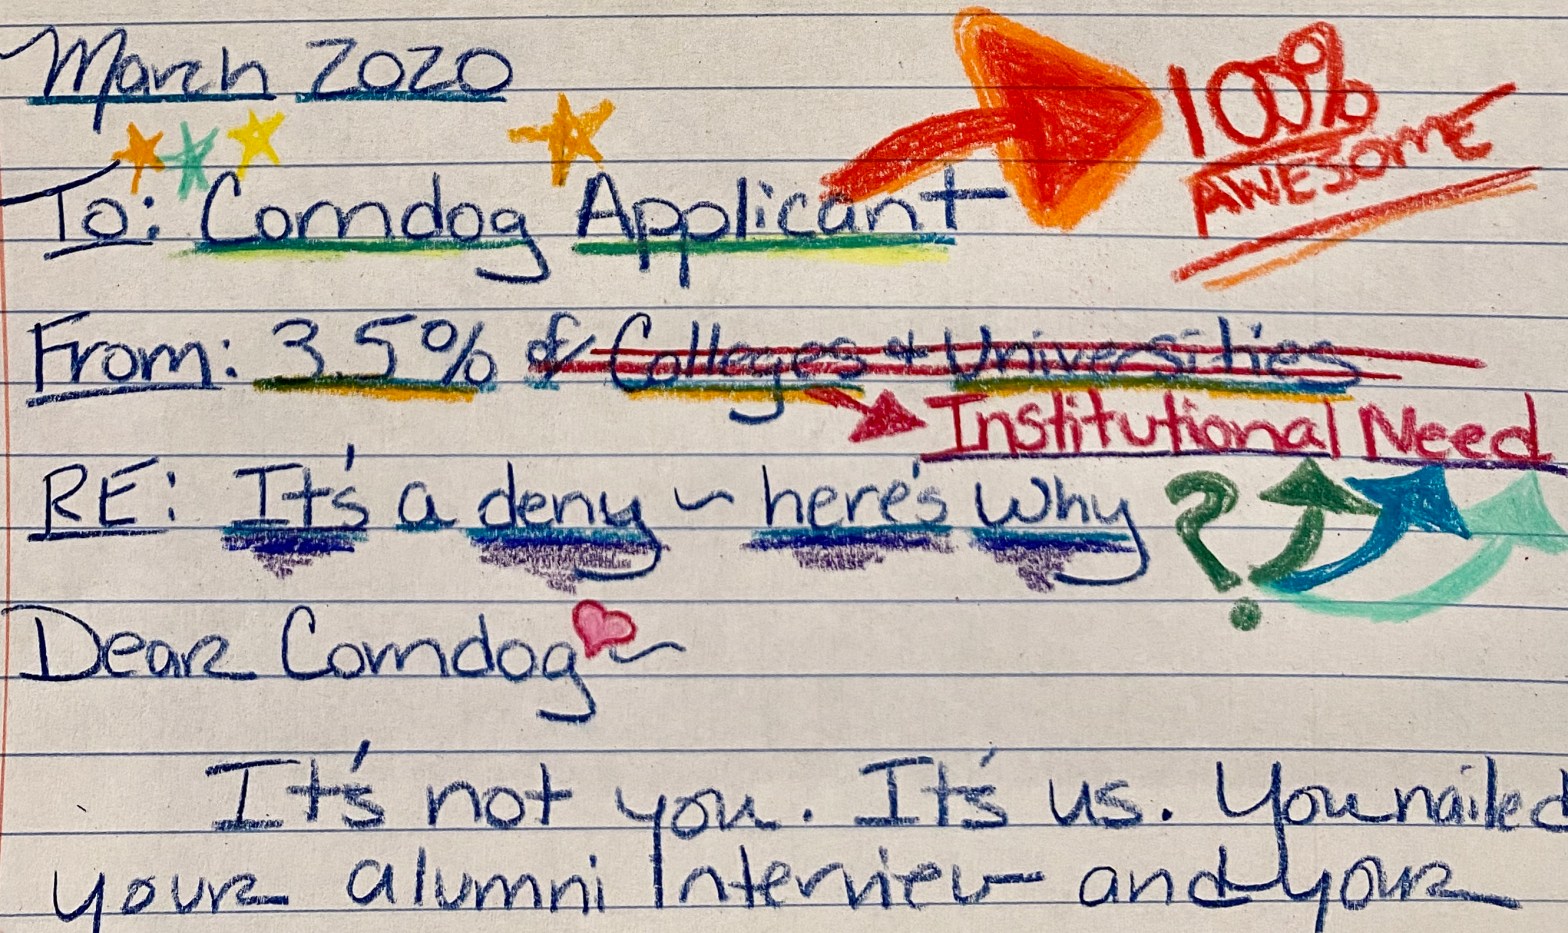 March 2020
100%
AWESOME
To: Corndog Applicant
From: 3.5% of Colleges & Universities
Institutional Need
RE: It's a deny ~ here's why
?
Dear Corndog ~
It's not you. It's us. You nailed
your alumni Interview and your